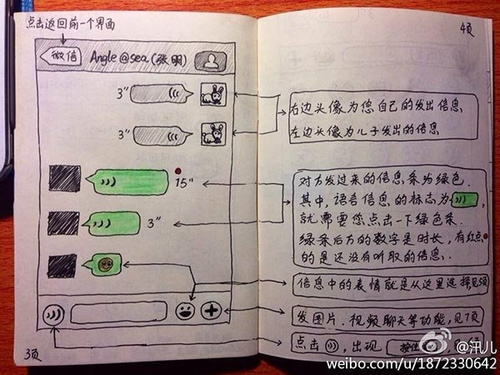 点击返回前一个界面
微信
Angle@sea(张明)
3"
3"
15"
3"
3页
4页
右边头像为您自己的发出信息
左边头像为儿子发出的信息
对方发过来的信息条为绿色.
其中,语音信息的标志为
就需要您点击一下绿色条
绿条后方的数字是时长,有红点
的是还没有听取的信息.
信息中的表情就是从这里选择见
发图片.视频聊天等功能,见7页
点击 ,出现
按住
@汛儿
weibo.com/u/1872330642